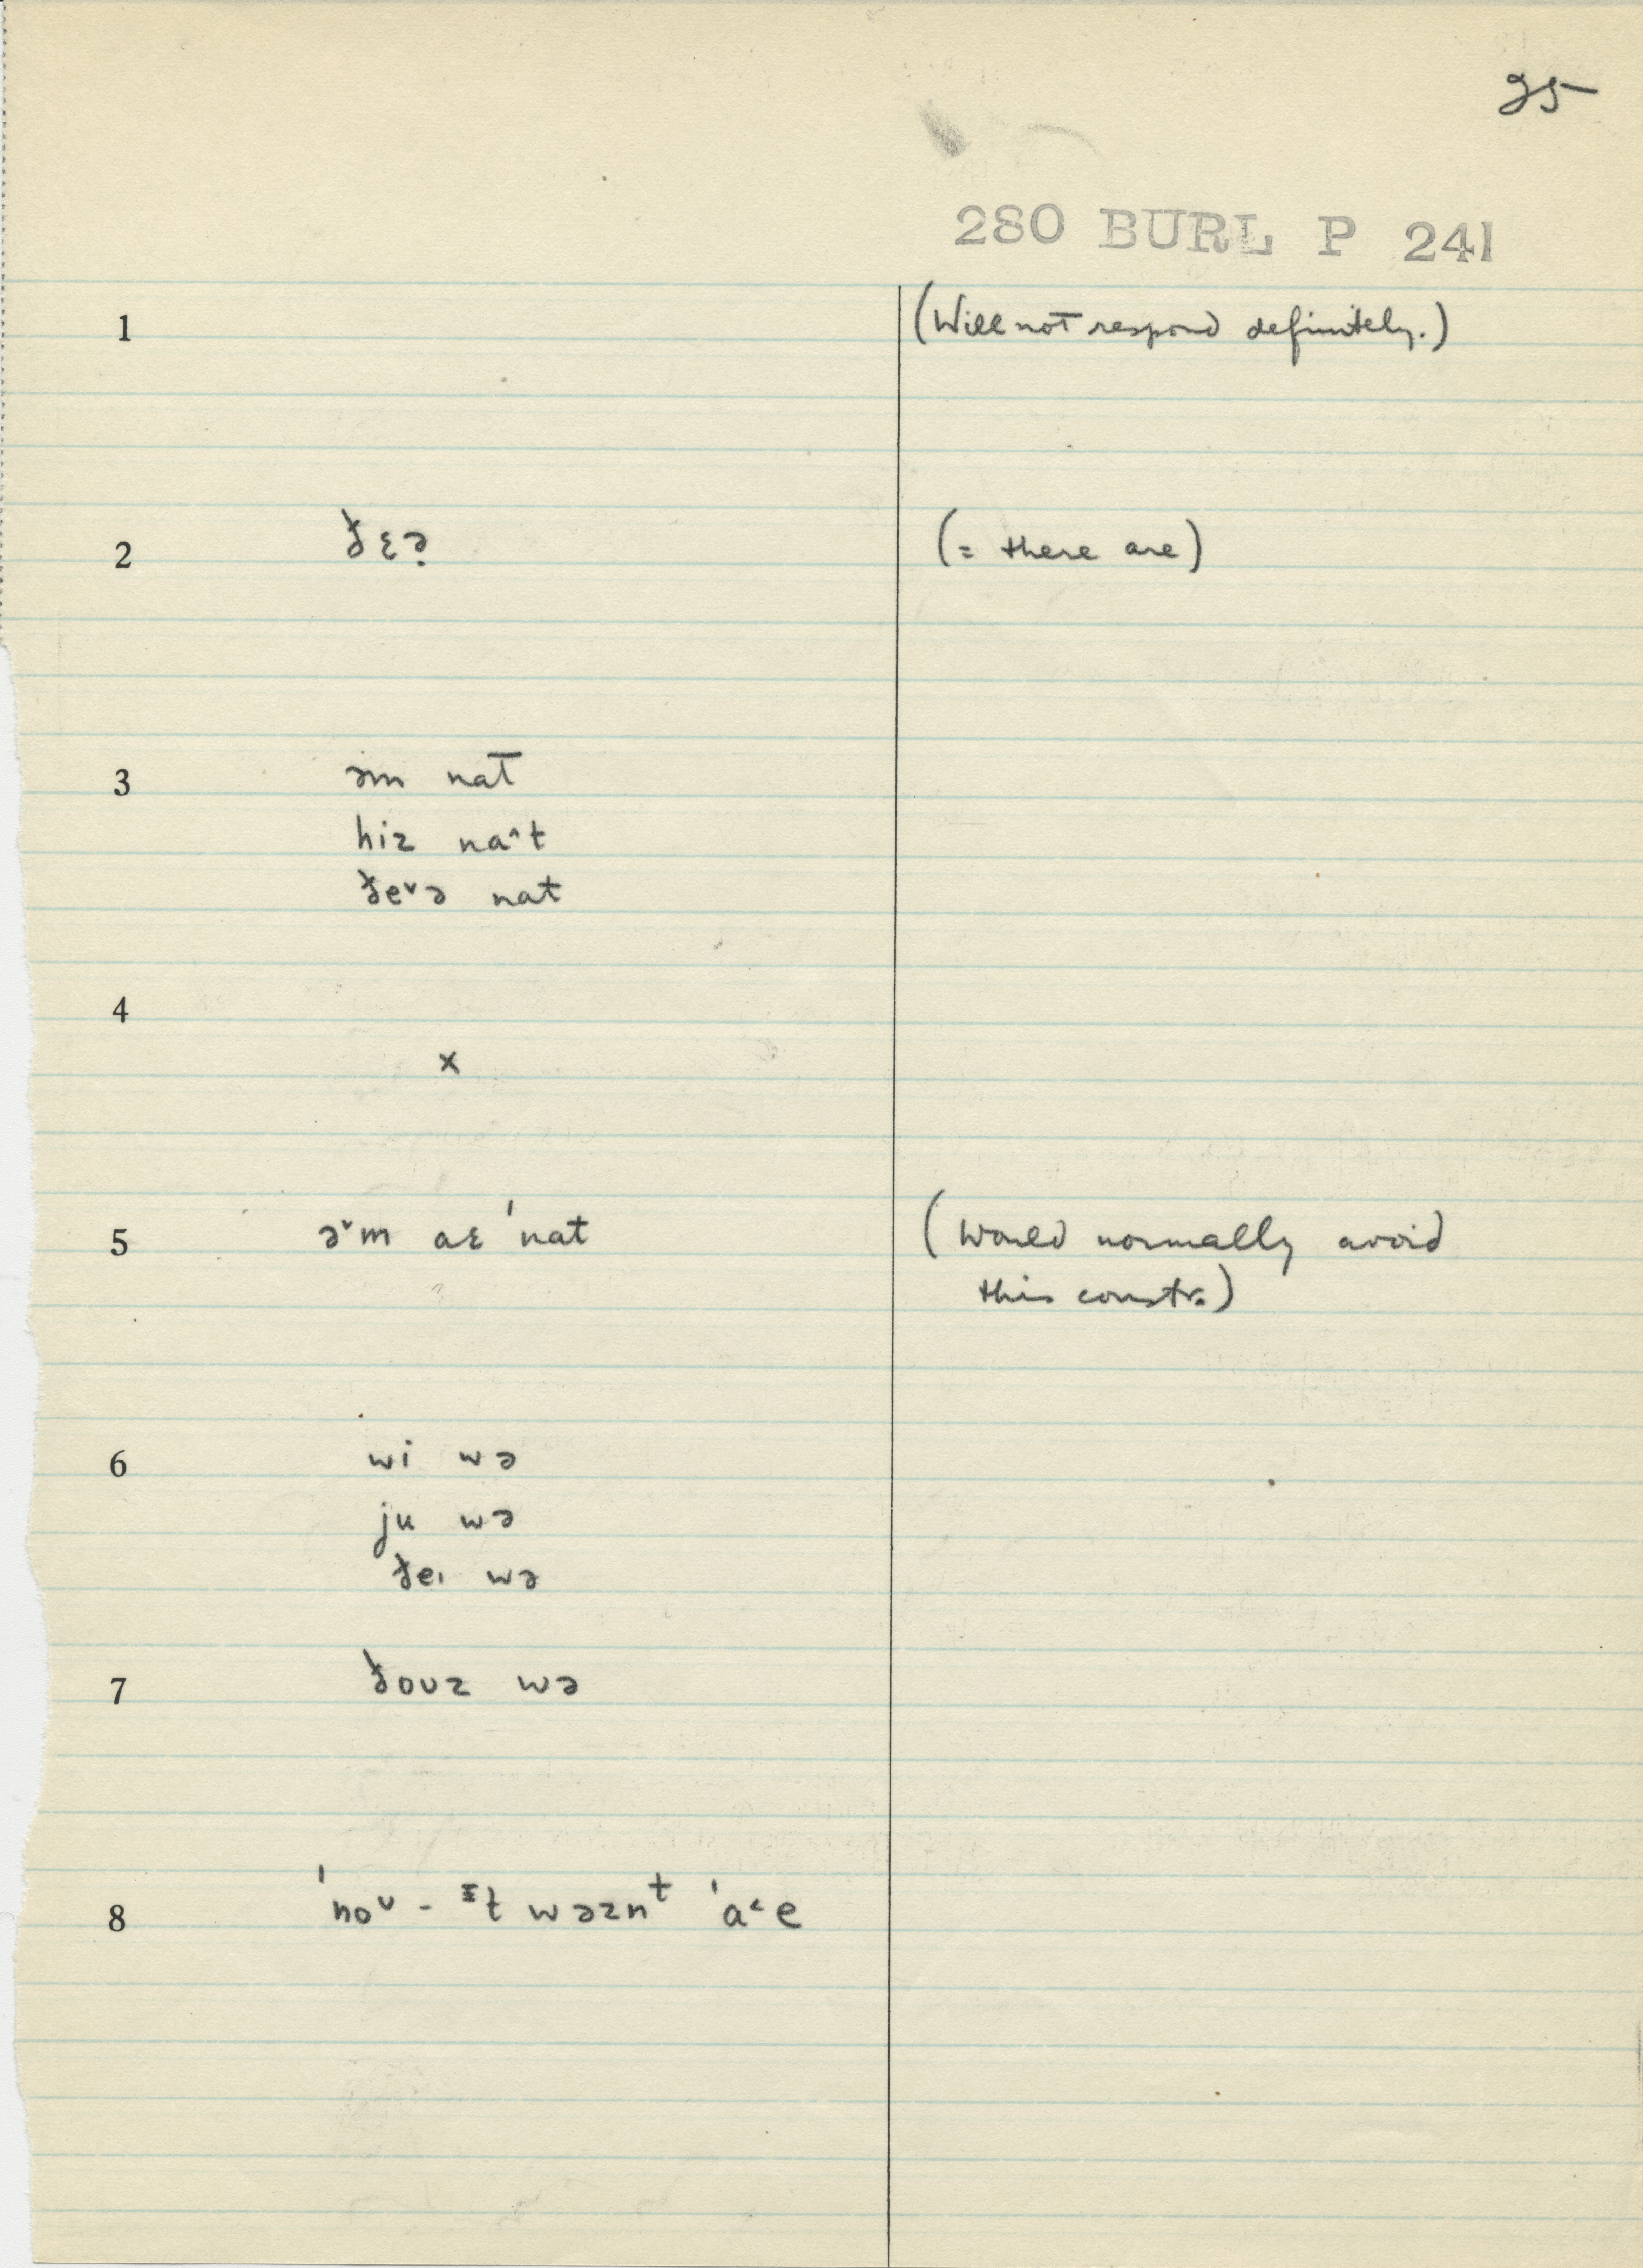 25
280 BURL P 241
1 (Will not respond definitely.)
2 ðɛə̣ (= there are)
3 əm nat
hiz na˄t
ðe˅ə nat
4
x
5 ə˅m aɛ ˈnat (Would normally avoid
this constr.)
6 wi wə
ju wə
ðeɪ wə
7 ðoʊz wə
8 ˈnoᴜ - ᴵt wəznᵗ ˈa˂e